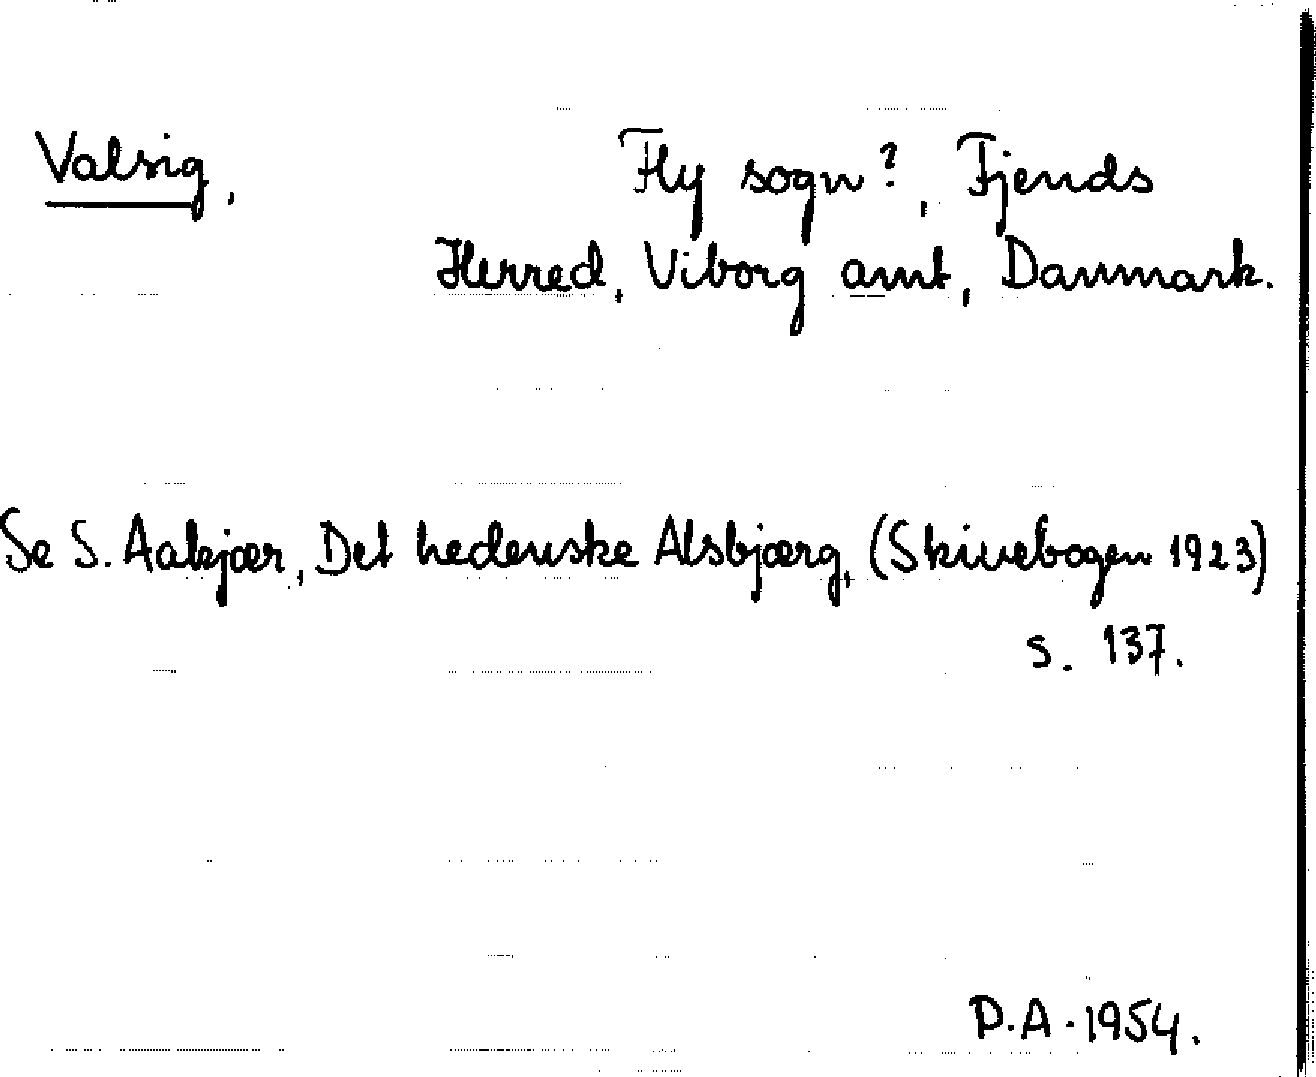 Valsig, Fly sogn?, Fjends
Herred, Viborg amt, Danmark.
Se S. Aakjær, Det hedenske Alsbjærg, (Skivebogen 1923)
s. 137.
P.A. 1954.